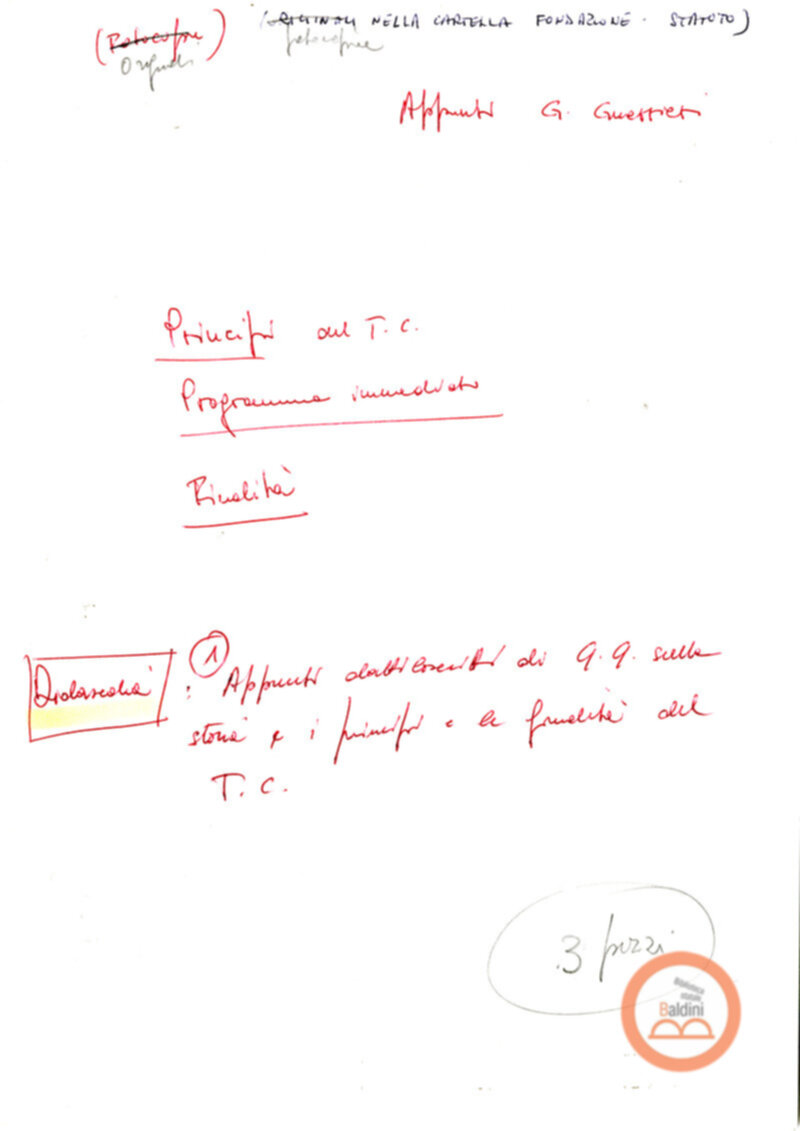 (Fotocopie) (ORIGINALI NELLA CARTELLA FONDAZIONE - STATUTO)
Originali fotocopie
Appunti G. Guerrieri
Principi del T. C.
Programma immediato
Finalità
Didascalia : ① Appunti dattiloscritti di G. G. sulla
storia e i principi e le finalità del
T. C.
3 pezzi
Biblioteca
statale
Baldini